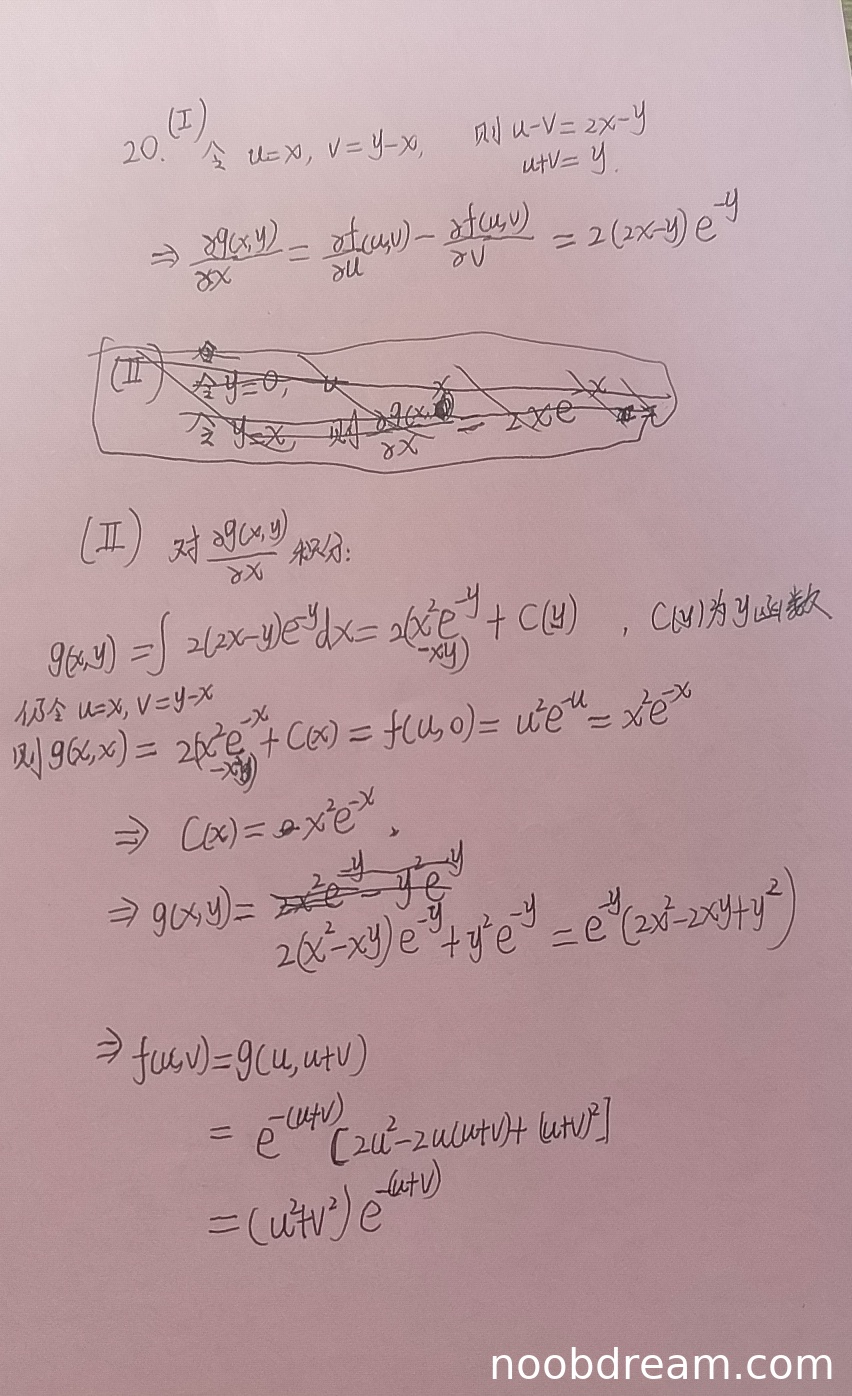 20. (I) 令 u=x, v=y-x, 则 u-v=2x-y
u+v=y.
⇒ ∂g(x,y)/∂x = ∂f(u,v)/∂u - ∂f(u,v)/∂v = 2(2x-y)e^{-y}
(II)
令 y=0,
令 y=x, 则 ∂g(x,
(II) 对 ∂g(x,y)/∂x 积分:
g(x,y) = ∫ 2(2x-y)e^{-y}dx = 2(x²e^{-y} + C(y) , C(y)为y函数
-xy)
仍令 u=x, v=y-x
则 g(x,x) = 2(x²e^{-x} + C(x) = f(u,0) = u²e^{-u} = x²e^{-x}
⇒ C(x) = x²e^{-x}.
⇒ g(x,y) = 2x²e^{-y} - y²e^{-y}
2(x²-xy)e^{-y} + y²e^{-y} = e^{-y}(2x²-2xy+y²)
⇒ f(u,v) = g(u,u+v)
= e^{-(u+v)}[2u²-2u(u+v)+(u+v)²]
= (u²+v²)e^{-(u+v)}
noobdream.com